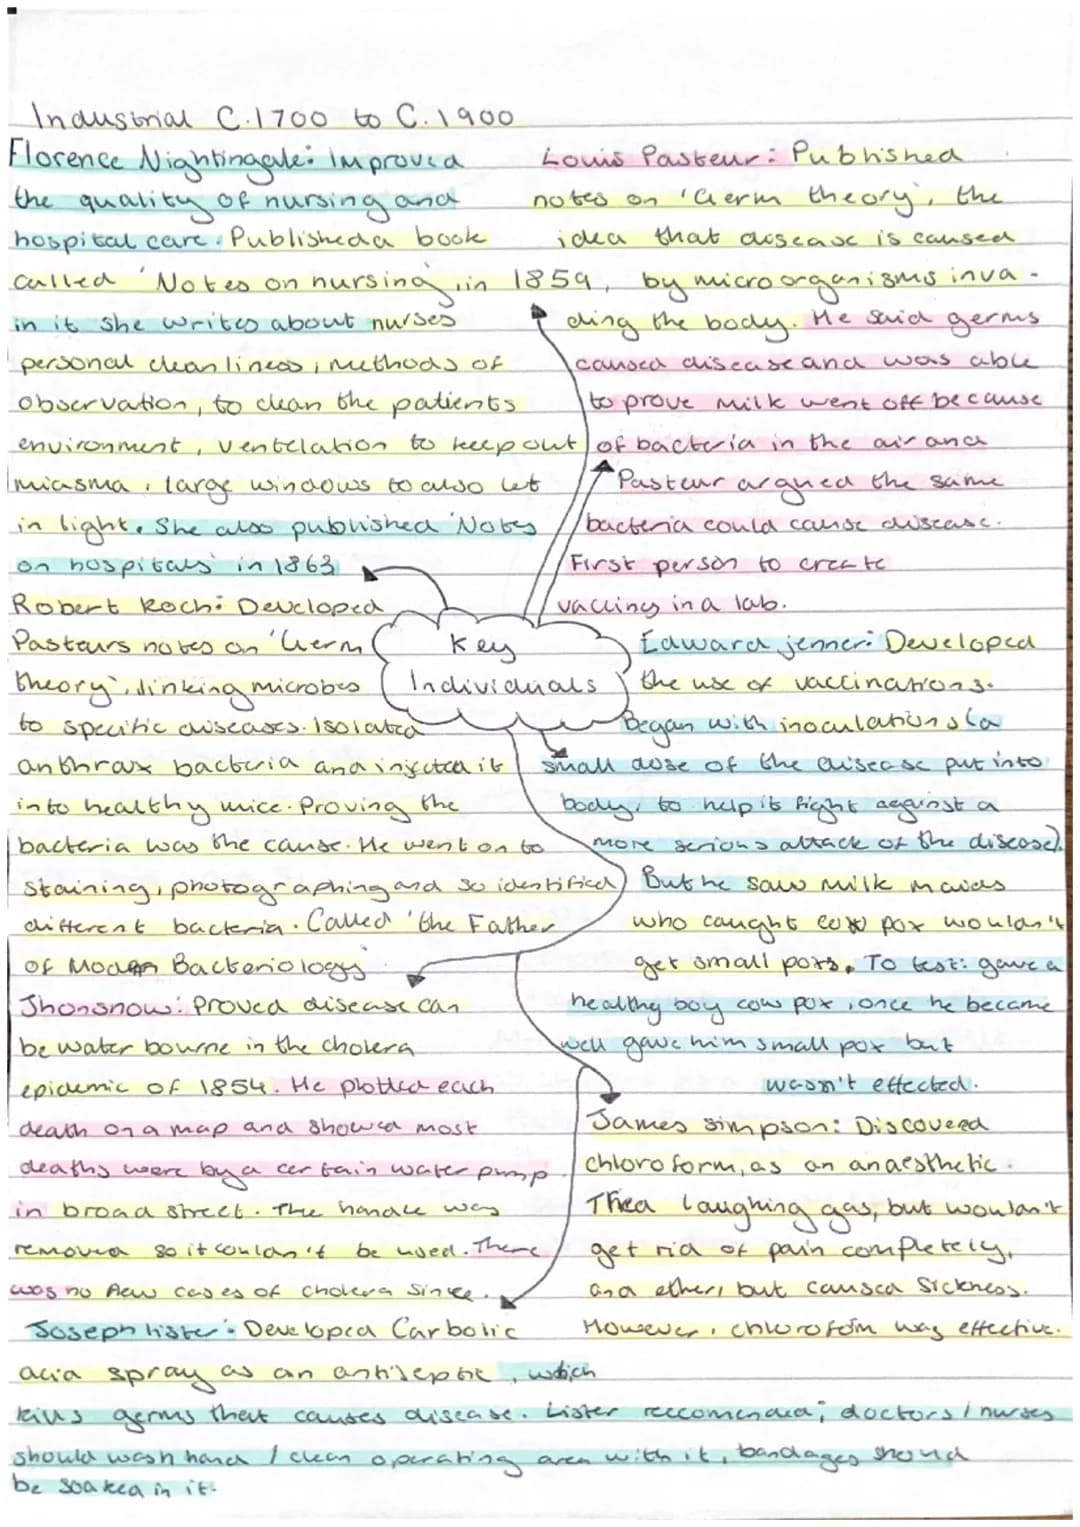 Industrial C.1700 to C.1900
Florence Nightingale: Improved
the quality of nursing and
hospital care. Published a book
called 'Notes on nursing', in 1859,
in it she writes about nurses
personal cleanliness, methods of
observation, to clean the patients
environment, ventelation to keep out
miasma, large windows to also let
in light. She also published 'Notes
on hospitals' in 1863
Robert Koch: Developed
Pasteurs notes on 'Germ
theory', linking microbes
to specific diseases. Isolated
anthrax bacteria and injected it
into healthy mice. Proving the
bacteria was the cause. He went on to
staining, photographing and so identified
different bacteria. Called 'the Father
of Modern Bacteriology'
Jhonsnow: Proved disease can
be water bourne in the cholera
epidemic of 1854. He plotted each
death on a map and showed most
deaths were by a certain water pump
in broad street. The handle was
removed so it couldn't be used. There
was no new cases of cholera since.
Joseph lister: Developed Carbolic
acid spray as an antiseptic, which
kills germs that causes disease. Lister reccomended; doctors / nurses
should wash hand / clean operating area with it, bandages should
be soaked in it.
Key
Individuals
Louis Pasteur: Published
notes on 'Germ theory', the
idea that disease is caused
by microorganisms inva-
ding the body. He said germs
caused disease and was able
to prove milk went off because
of bacteria in the air and
Pasteur argued the same
bacteria could cause disease.
First person to create
vaccines in a lab.
Edward jenner: Developed
the use of vaccinations.
Began with inoculations (a
small dose of the disease put into
body, to help it fight against a
more serious attack of the disease).
But he saw milk maids
who caught cow pox wouldn't
get small poxs. To test: gave a
healthy boy cow pox, once he became
well gave him small pox but
wasn't effected.
James simpson: Discovered
chloroform, as an anaesthetic.
Tried laughing gas, but wouldn't
get rid of pain completely,
and ether, but caused sickness.
However, chloroform was effective.